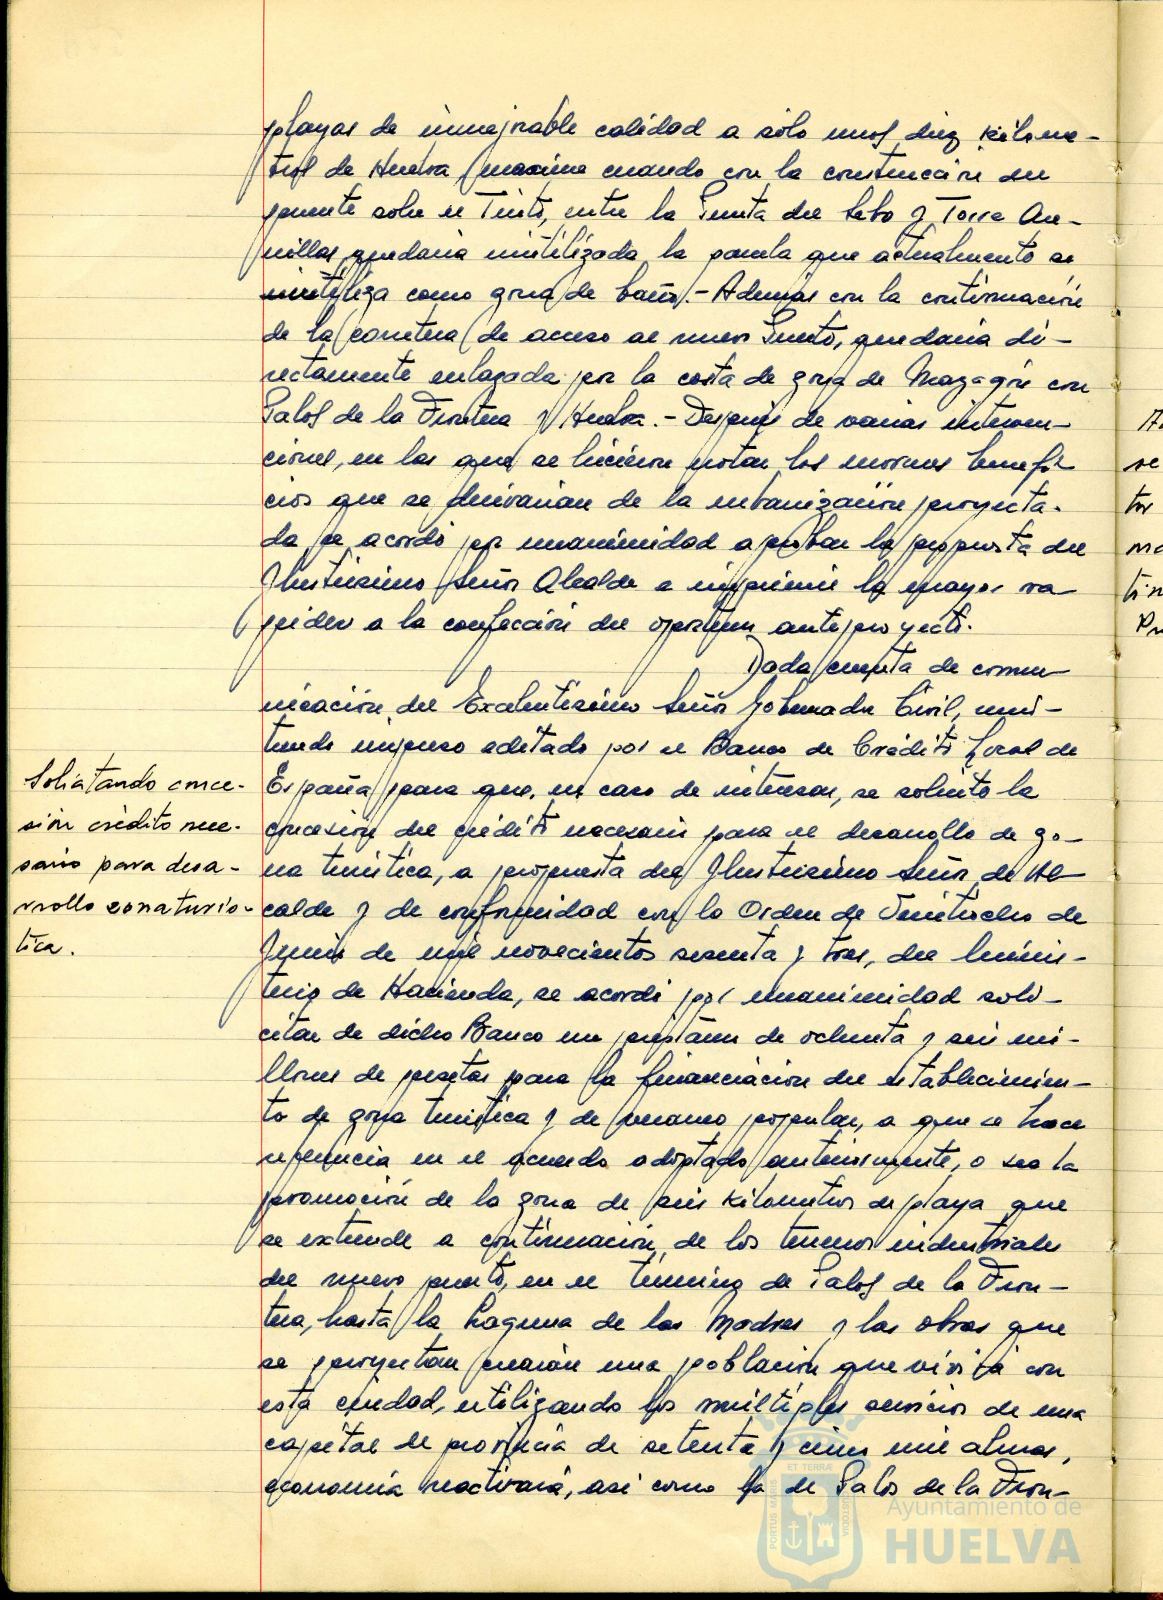 playas de inmejorable calidad a sólo unos diez kilome-
tros de Huelva maxime cuando con la construcción del
puente sobre el Tinto, entre la Punta del Sebo y Torre Are-
nillas quedaria inutilizada la parcela que actualmente se
inutiliza como zona de baño.- Además con la continuación
de la carretera de acceso al nuevo Puerto, quedaria di-
rectamente enlazada por la costa de zona de Mazagón con
Palos de la Frontera y Huelva.- Después de varias interven-
ciones, en las que se hicieron notar los enormes benefi-
cios que se derivarian de la urbanización proyecta-
da se acordó por unanimidad aprobar la propuesta del
Ilustrisimo Señor Alcalde e imprimir la mayor ra-
pidez a la confección del oportuno anteproyecto.
Dada cuenta de comu-
nicación del Excelentisimo Señor Gobernador Civil, remi-
tiendo impreso editado por el Banco de Crédito Local de
España para que, en caso de interesar, se solicite la
concesión del crédito necesario para el desarrollo de zo-
na turistica, a propuesta del Ilustrisimo Señor de Al-
calde y de conformidad con la Orden de Veintiocho de
Junio de mil novecientos sesenta y tres, del Minis-
terio de Hacienda, se acordó por unanimidad soli-
citar de dicho Banco un préstamo de ochenta y seis mi-
llones de pesetas para la financiación del establecimien-
to de zona turistica y de veraneo popular, a que se hace
referencia en el acuerdo adoptado anteriormente, o sea la
promoción de la zona de seis kilometros de playa que
se extiende a continuación de los terrenos industriales
del nuevo puerto, en el término de Palos de la Fron-
tera, hasta la Laguna de las Madres y las obras que
se proyectan crearán una población que vivirá con
esta ciudad, utilizando los múltiples servicios de una
capital de provincia de setenta y cinco mil almas,
economía reactivará, asi como la de Palos de la Fron-
Solicitando conce-
sión crédito nece-
sario para desa-
rrollo zona turis-
tica.
se
tor
Ayuntamiento de
HUELVA
ET TERRÆ
PORTUS MARIS
CUSTODIA